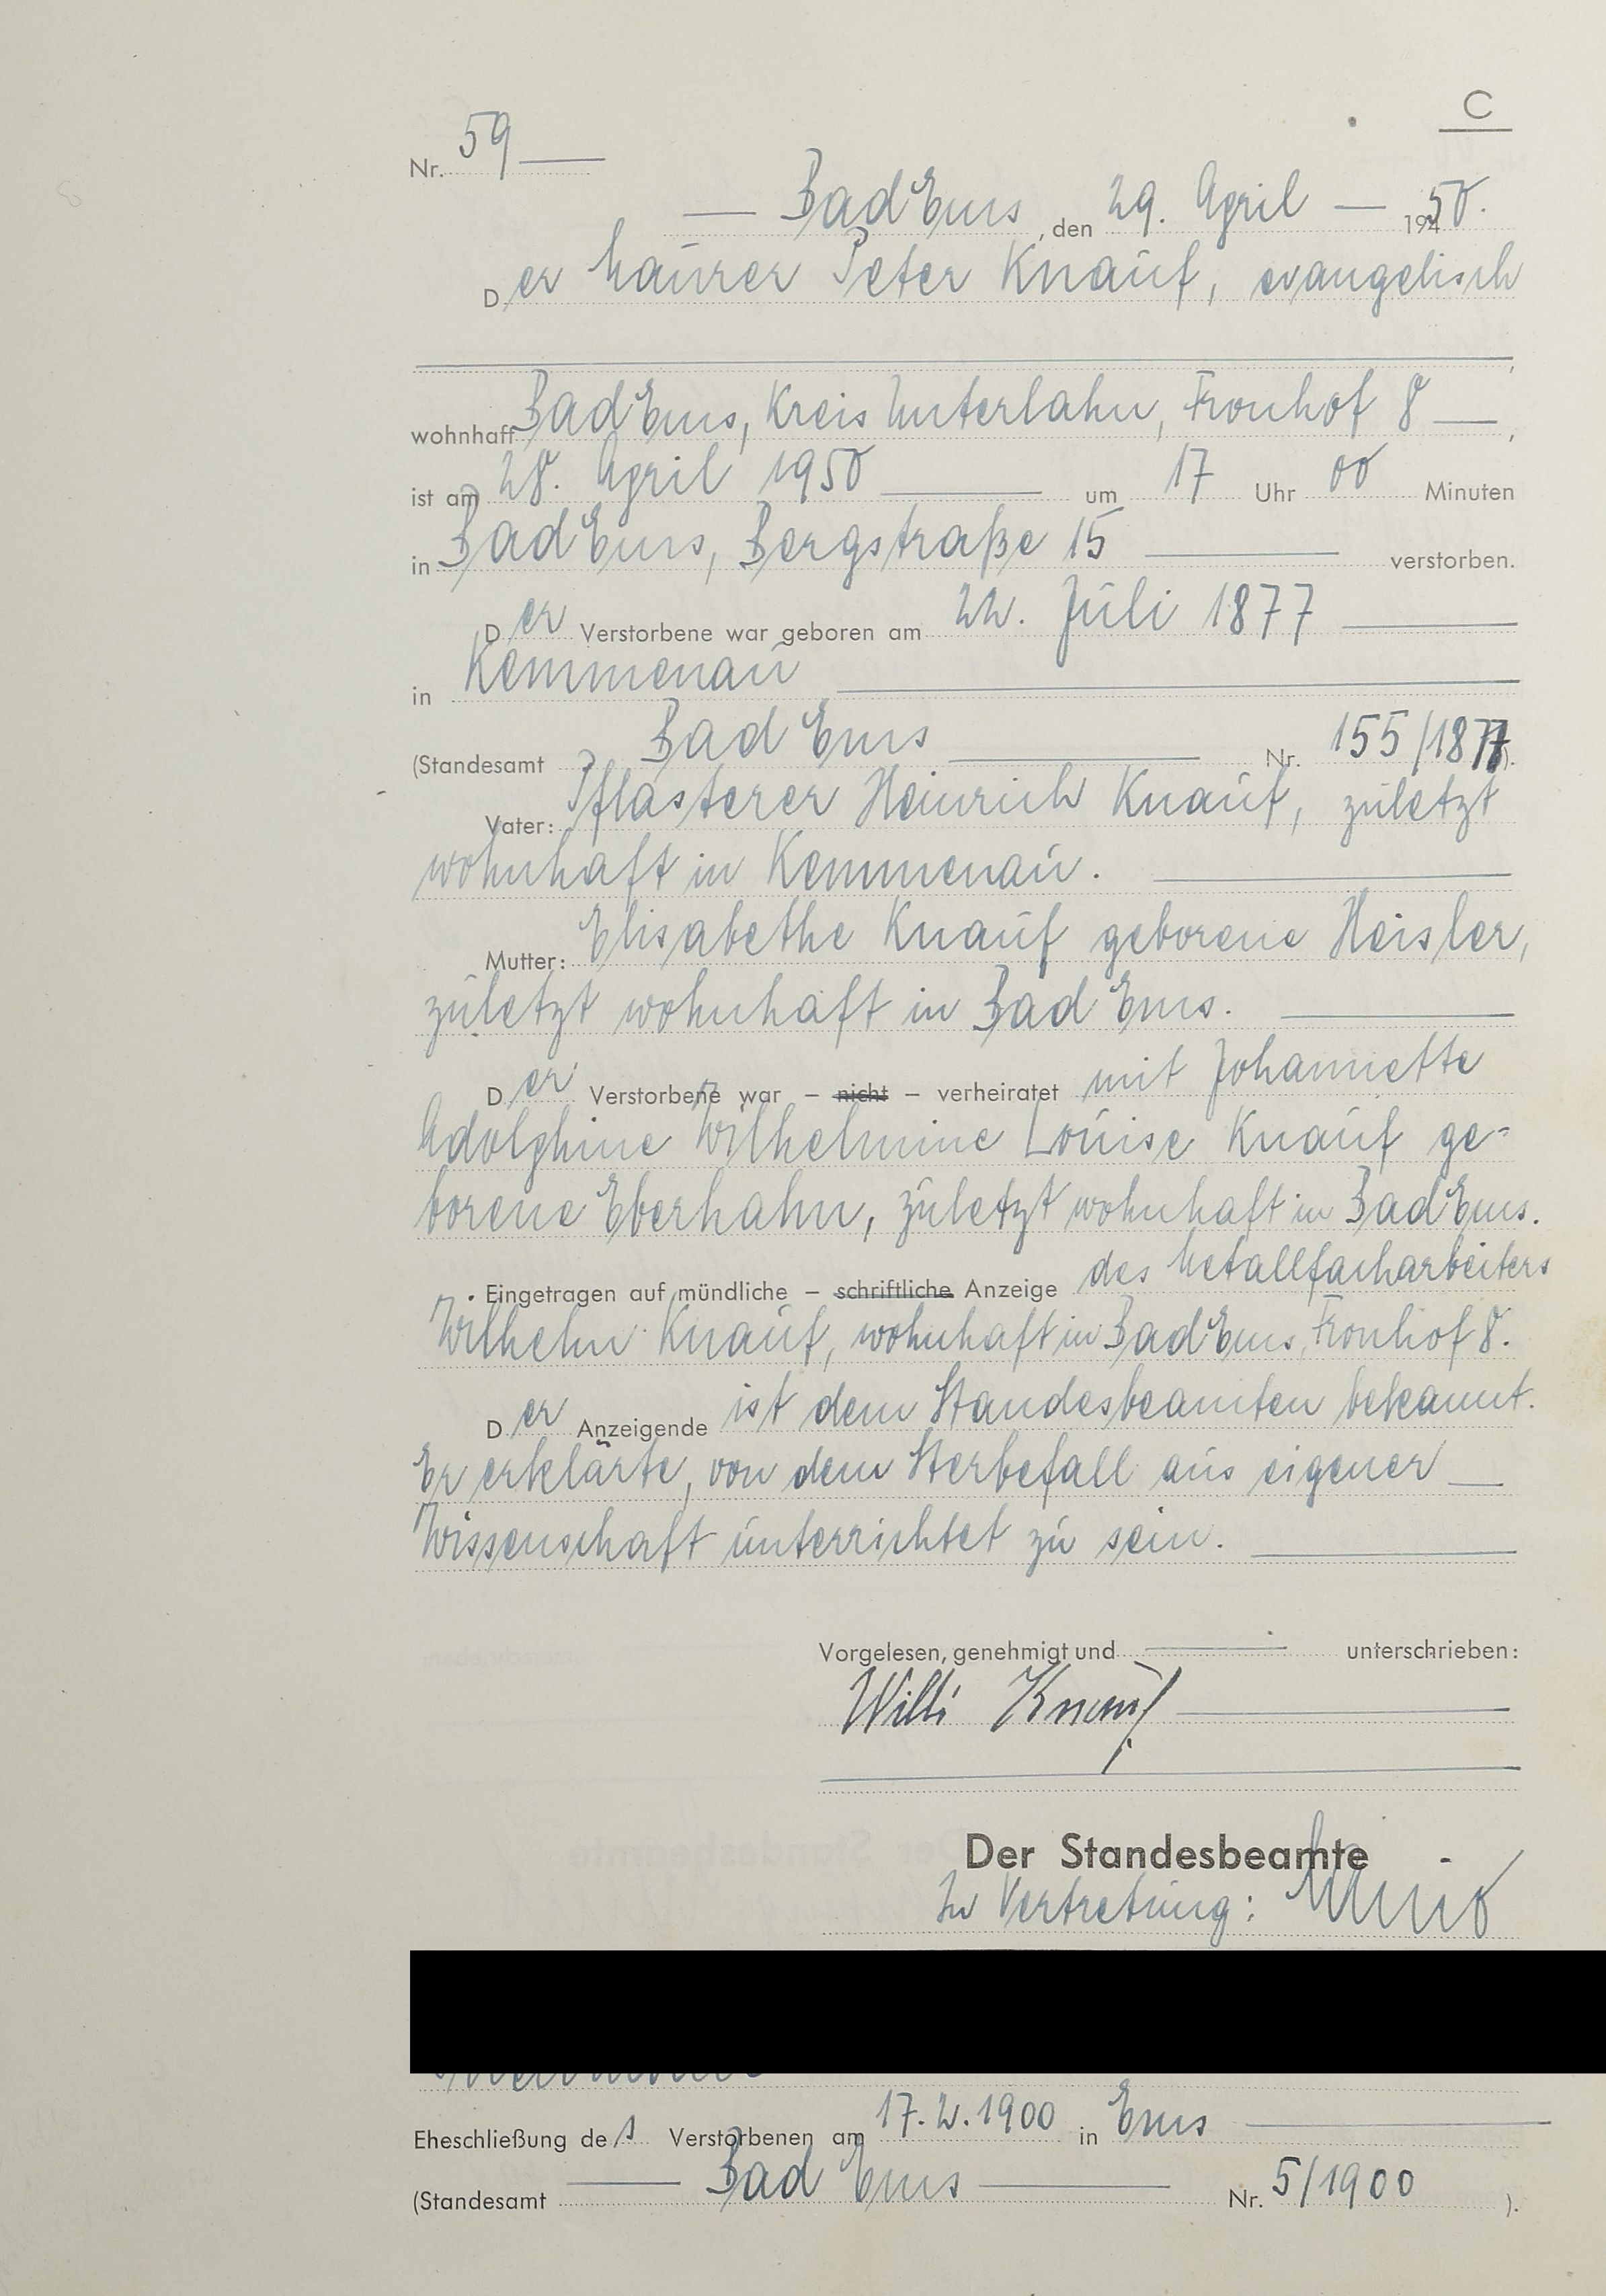 C
Nr. 59
Bad Ems, den 29. April 1950.
Der Maurer Peter Knauf, evangelisch
wohnhaft Bad Ems, Kreis Unterlahn, Fronhof 8,
ist am 28. April 1950 um 17 Uhr 00 Minuten
in Bad Ems, Bergstraße 15 verstorben.
Der Verstorbene war geboren am 22. Juli 1877
in Kemmenau
(Standesamt Bad Ems Nr. 155/1877).
Vater: Pflasterer Heinrich Knauf, zuletzt
wohnhaft in Kemmenau.
Mutter: Elisabethe Knauf geborene Heisler,
zuletzt wohnhaft in Bad Ems.
Der Verstorbene war – nicht – verheiratet mit Johannette
Adolphine Wilhelmine Louise Knauf ge-
borene Eberhahn, zuletzt wohnhaft in Bad Ems.
Eingetragen auf mündliche – schriftliche Anzeige des Metallfacharbeiters
Wilhelm Knauf, wohnhaft in Bad Ems, Fronhof 8.
Der Anzeigende ist dem Standesbeamten bekannt.
Er erklärte, von dem Sterbefall aus eigener
Wissenschaft unterrichtet zu sein.
Vorgelesen, genehmigt und unterschrieben:
Willi Knauf
Der Standesbeamte
In Vertretung:
Eheschließung des Verstorbenen am 17.2.1900 in Ems
(Standesamt Bad Ems Nr. 5/1900).